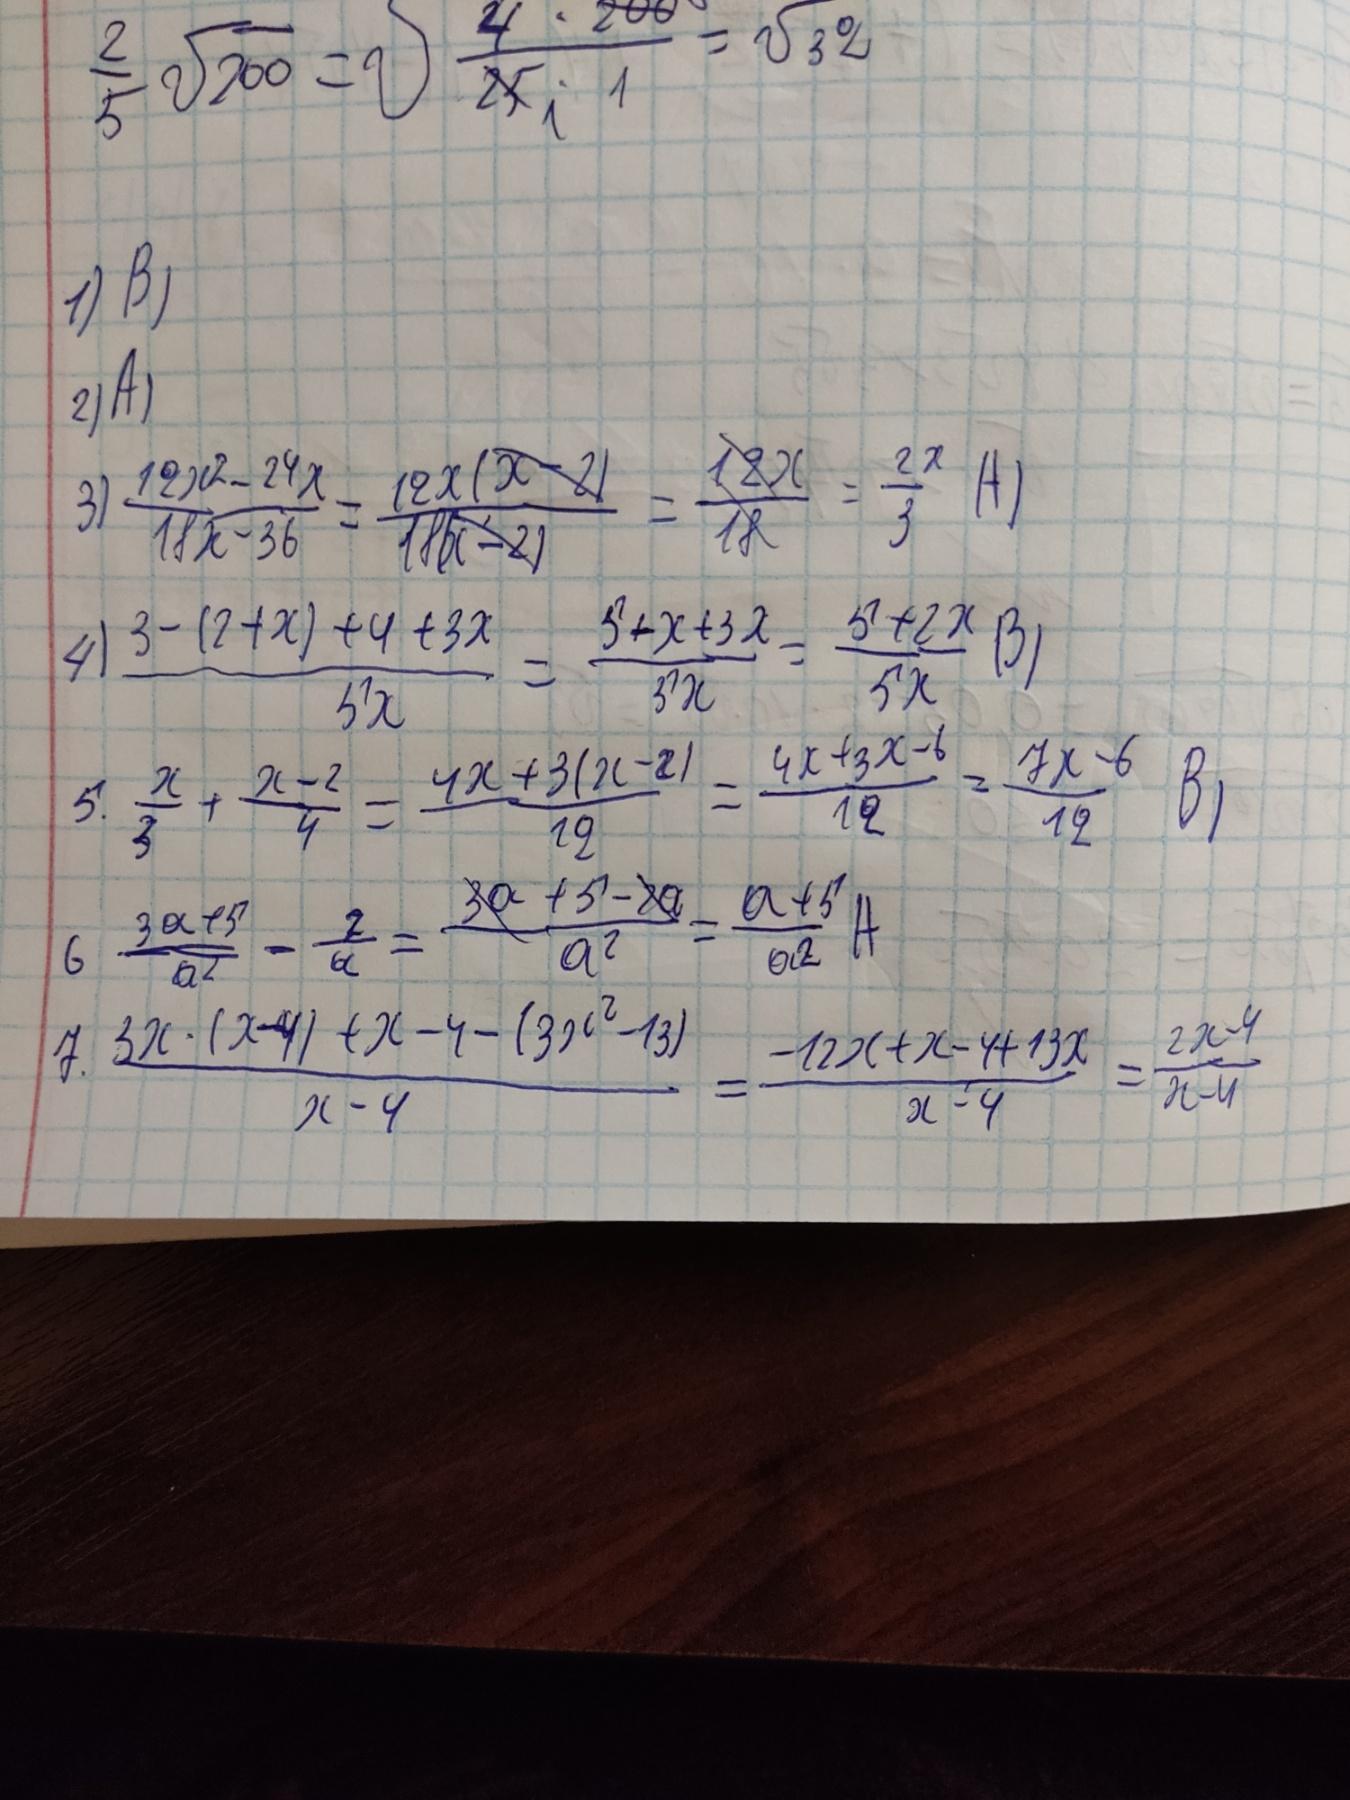 2/5 √200 = √(4 · 200 / 25 · 1) = √32
1) В)
2) А)
3) (12x² - 24x)/(18x - 36) = 12x(x - 2)/18(x - 2) = 12x/18 = 2x/3 А)
4) (3 - (2 + x) + 4 + 3x)/5x = (5 + x + 3x)/5x = (5 + 2x)/5x В)
5. x/3 + (x - 2)/4 = (4x + 3(x - 2))/12 = (4x + 3x - 6)/12 = (7x - 6)/12 В)
6 (3a + 5)/a² - 2/a = (3a + 5 - 2a)/a² = (a + 5)/a² А
7. (3x · (x - 4) + x - 4 - (3x² - 13))/(x - 4) = (-12x + x - 4 + 13x)/(x - 4) = (2x - 4)/(x - 4)